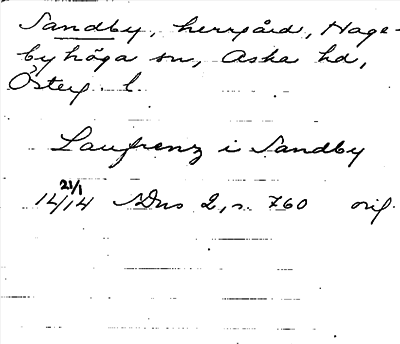 Sandby, herrgård, Hage-
byhöga sn, Aska hd,
Österg. l.
Laufrenz i Sandby
14 21/1 14 SDns 2, s. 760 orig.